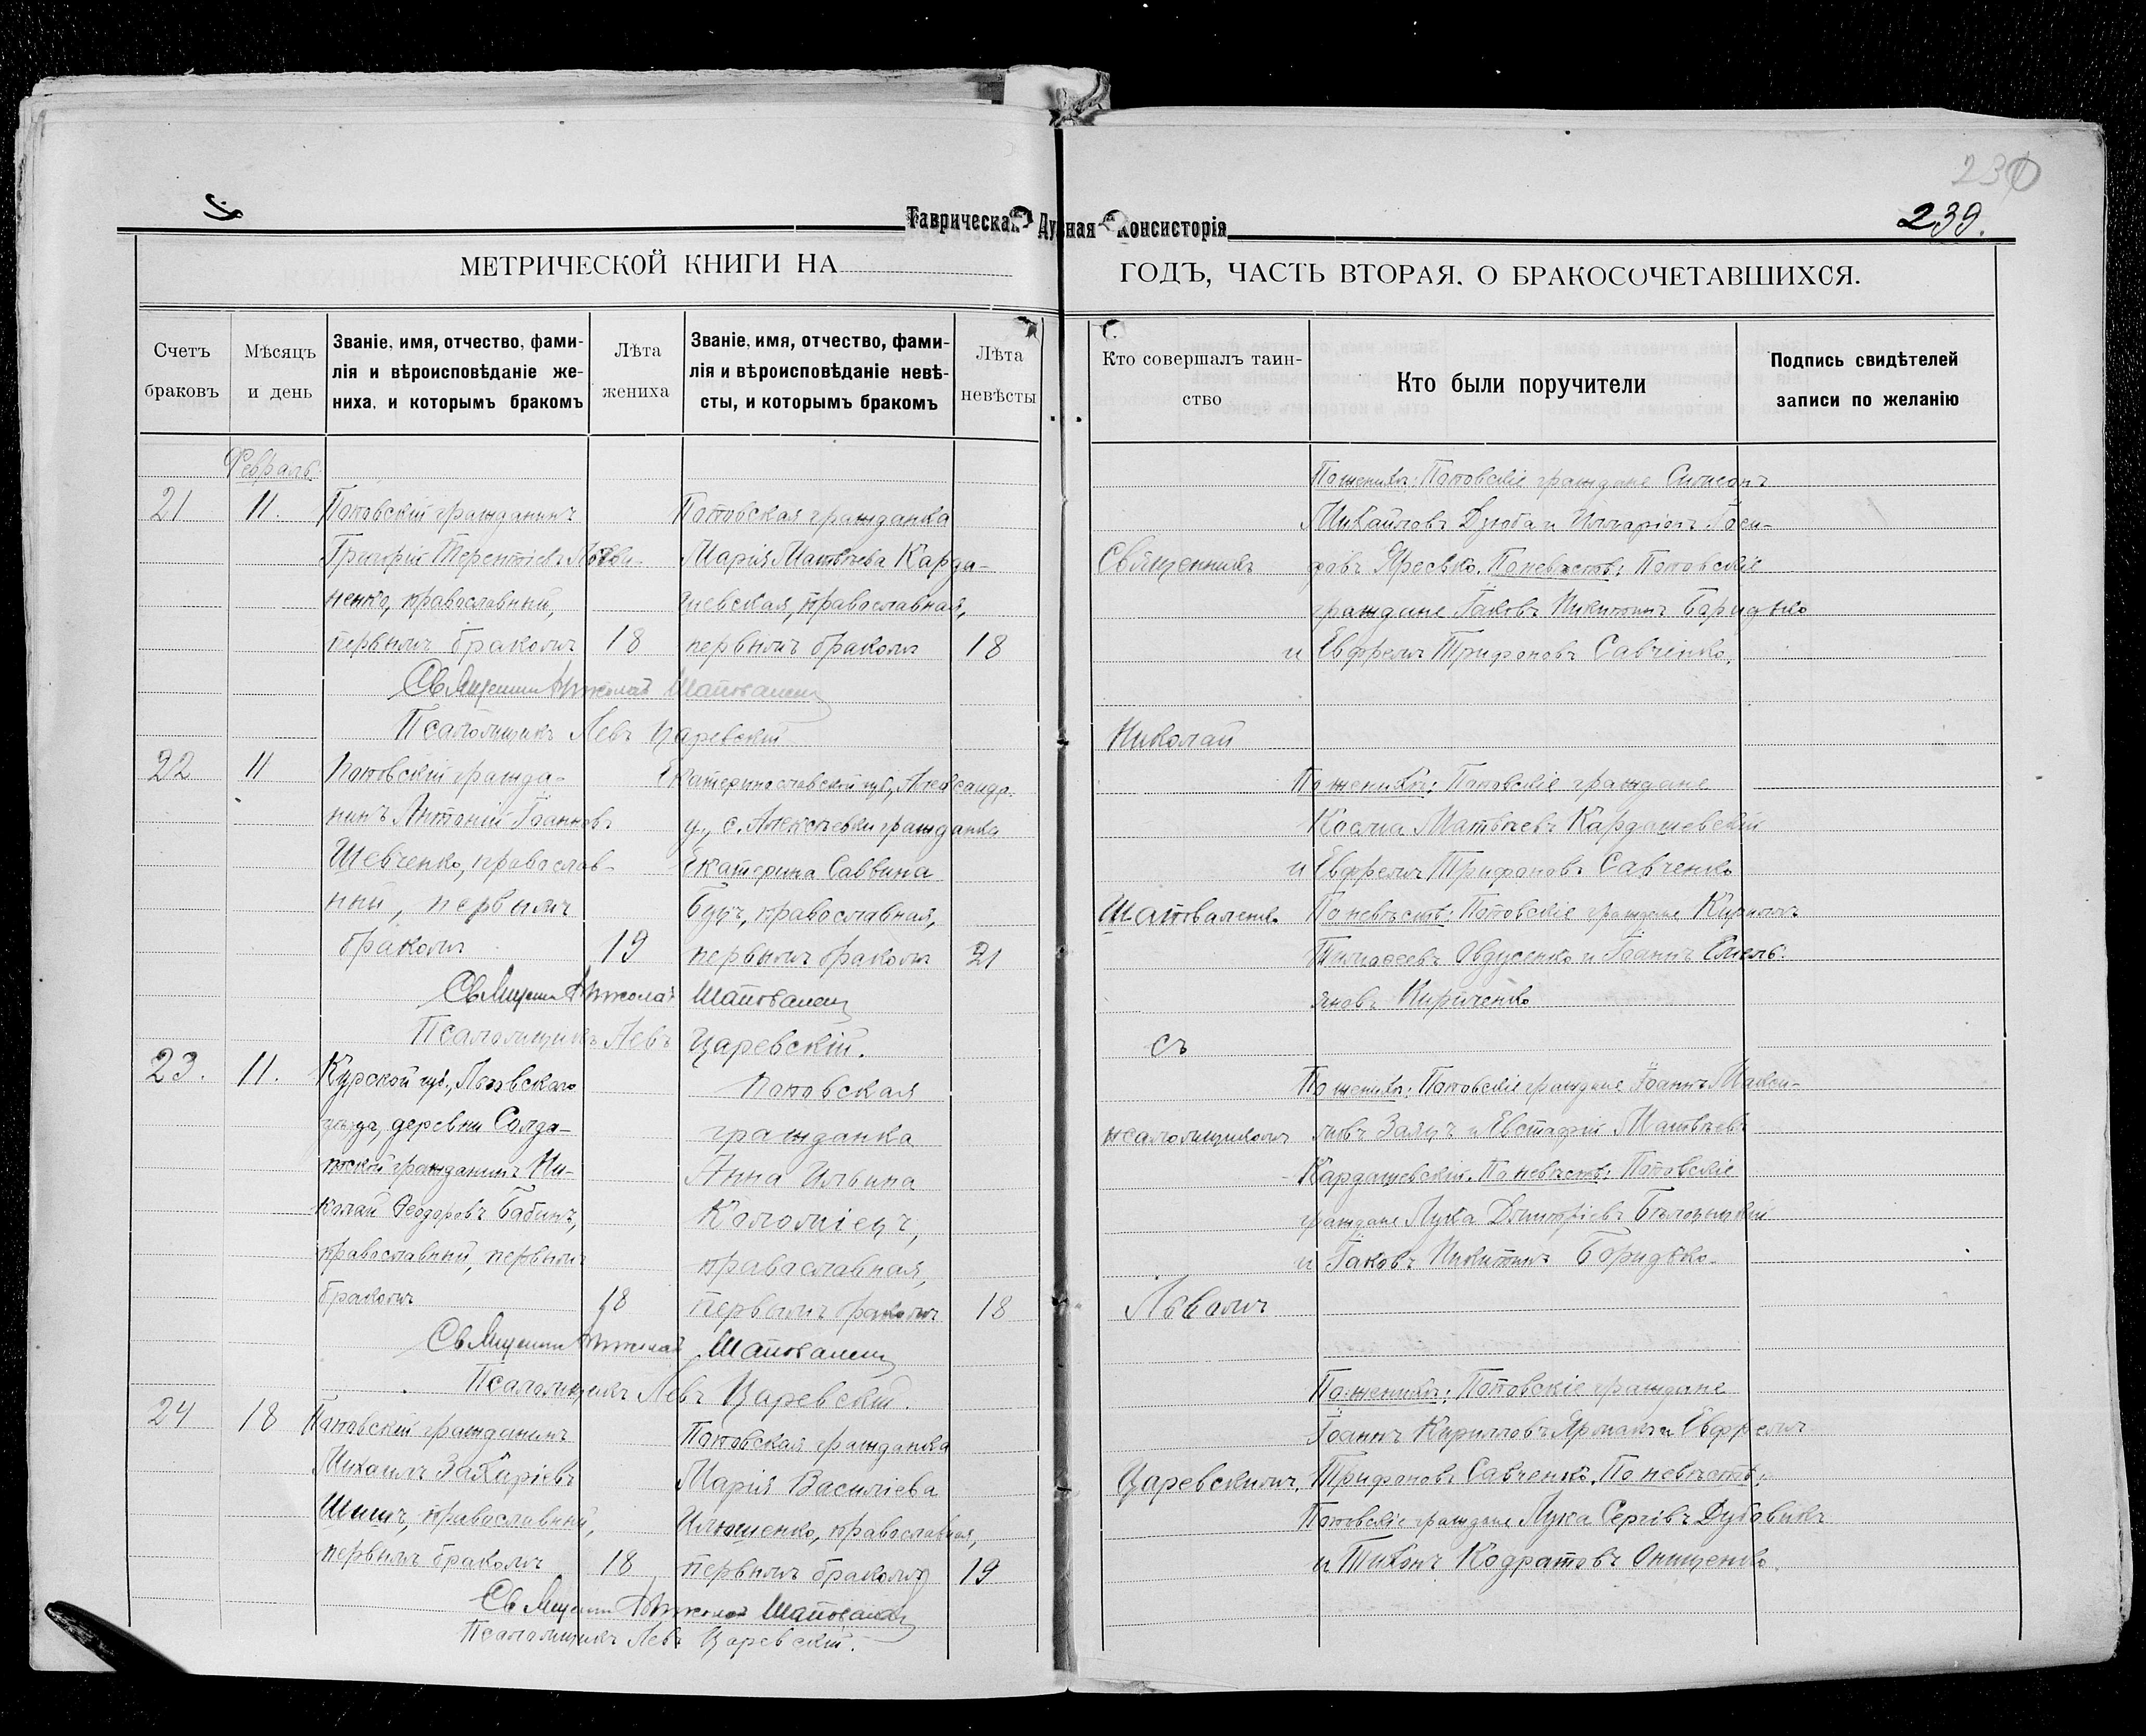 230
239.
Таврическая Духовная Консисторія
МЕТРИЧЕСКОЙ КНИГИ НА
ГОДЪ, ЧАСТЬ ВТОРАЯ, О БРАКОСОЧЕТАВШИХСЯ.
Счетъ браковъ
Мѣсяцъ и день
Званіе, имя, отчество, фами-
лія и вѣроисповѣданіе же-
ниха, и которымъ бракомъ
Лѣта жениха
Званіе, имя, отчество, фами-
лія и вѣроисповѣданіе невѣ-
сты, и которымъ бракомъ
Лѣта невѣсты
Кто совершалъ таин-
ство
Кто были поручители
Подпись свидѣтелей
записи по желанію
Февраль
21 11.
Поповскій гражданинъ
Григорій Терентіевъ
ненко, православный,
первымъ бракомъ 18
Поповская гражданка
Марія Матвѣева Карда-
шевская, православная,
первымъ бракомъ 18
Священникъ Николай Шаповаленко
Псаломщикъ Левъ Царевскій
22 11
Поповскій гражда-
нинъ Антоній Іоанновъ
Шевченко, православ-
ный, первымъ
бракомъ 19
Екатеринославской губ., Александр.
у., с. Алексѣевки гражданка
Екатерина Саввина
Буцъ, православная,
первымъ бракомъ 21
Священникъ Николай Шаповаленко
Псаломщикъ Левъ Царевскій.
23. 11.
Курской губ., Льговскаго
уѣзда, деревни Солда-
тской гражданинъ Ни-
колай Ѳеодоровъ Бабинъ,
православный, первымъ
бракомъ 18
Поповская
гражданка
Анна Ильина
Коломіецъ,
православная,
первымъ бракомъ 18
Священникъ Николай Шаповаленко
Псаломщикъ Левъ Царевскій.
24 18
Поповскій гражданинъ
Михаилъ Захаріевъ
Шишъ, православный,
первымъ бракомъ 18
Поповская гражданка
Марія Василіева
Илюшенко, православная,
первымъ бракомъ 19
Священникъ Николай Шаповаленко
Псаломщикъ Левъ Царевскій.
Священникъ
Николай
Шаповаленко
съ
псаломщикомъ
Львомъ
Царевскимъ.
По женихѣ: Поповскіе граждане Симеонъ
Михайловъ Дзюба и Илларіонъ Іоси-
фовъ Яресько. По невѣстѣ: Поповскіе
граждане Іаковъ Никитинъ Боридько
и Евфремъ Трифоновъ Савченко.
По женихѣ: Поповскіе граждане
Косма Матвѣевъ Кардашевскій
и Евфремъ Трифоновъ Савченко
По невѣстѣ: Поповскіе граждане Кириллъ
Тимоѳеевъ Овдусенко и Іоаннъ Емель-
яновъ Кириченко
По женихѣ: Поповскіе граждане Іоаннъ Макси-
мовъ Заяцъ и Евстафій Матвѣевъ
Кардашевскій. По невѣстѣ: Поповскіе
граждане Лука Димитріевъ
и Іаковъ Никитинъ Боридько.
По женихѣ: Поповскіе граждане
Іоаннъ Кирилловъ Ярмакъ и Евфремъ
Трифоновъ Савченко. По невѣстѣ:
Поповскіе граждане Лука Сергіевъ Дубовикъ
и Тихонъ Кодратовъ Онищенко.